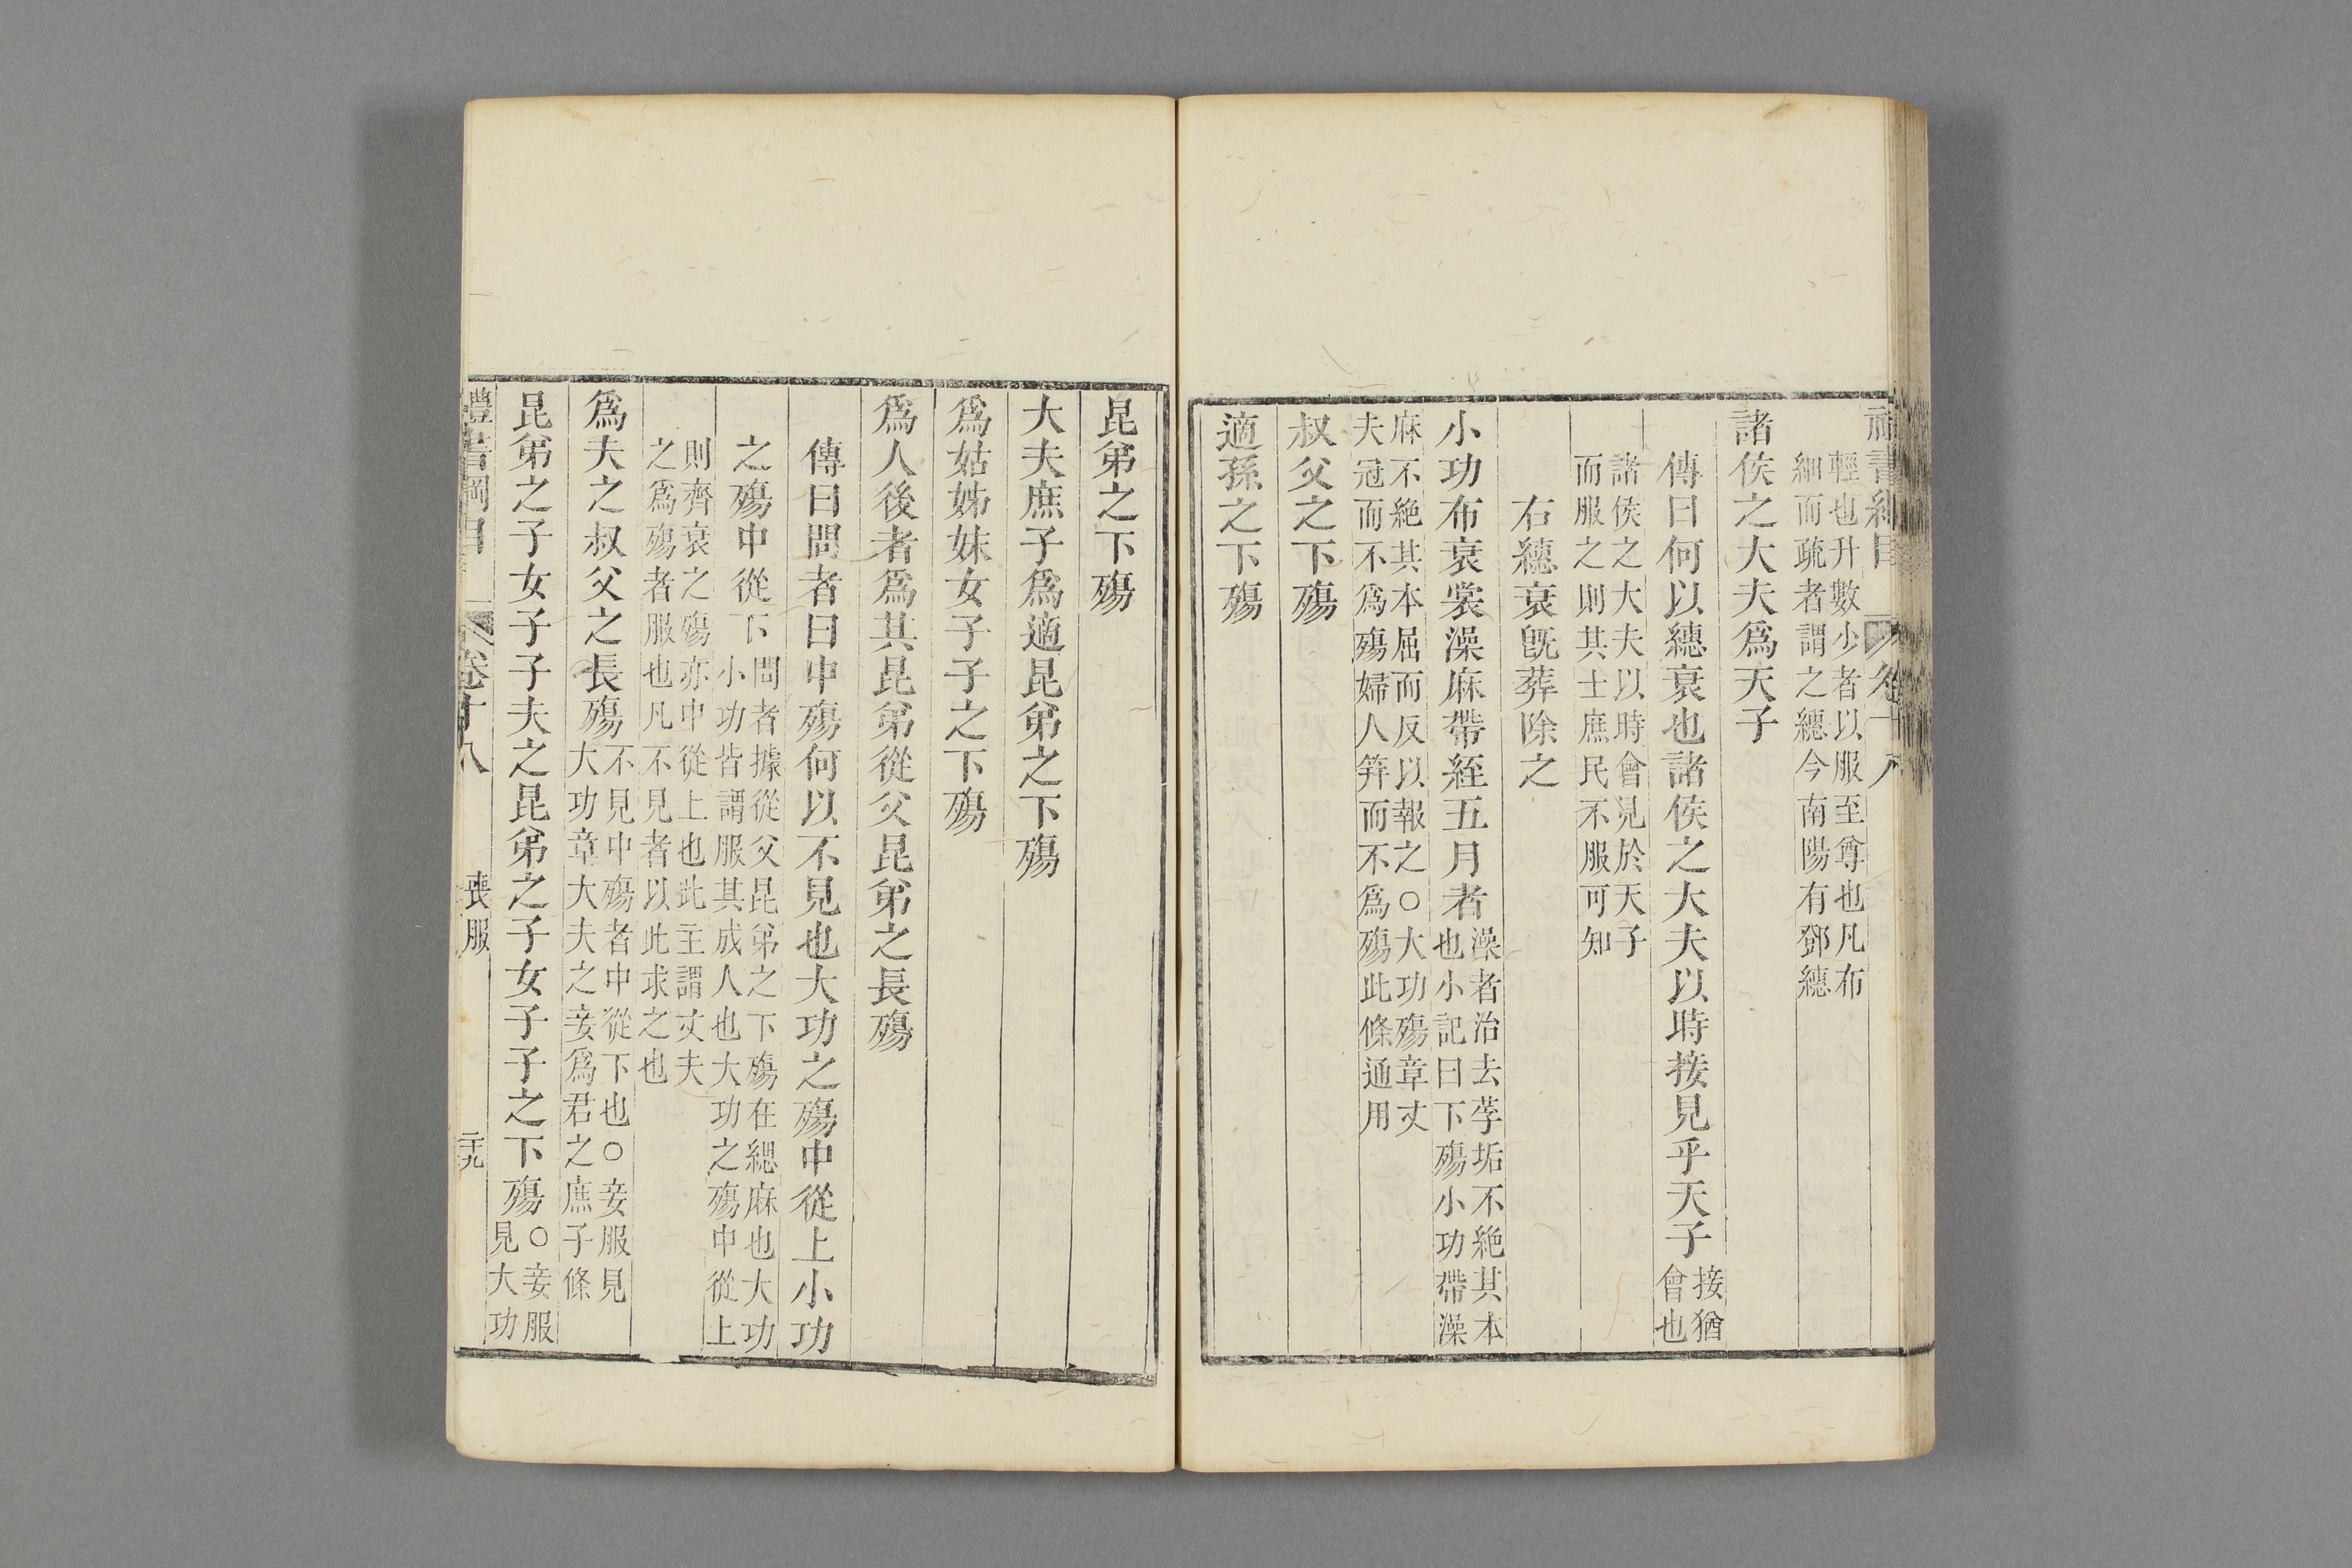 禮書綱目 卷十八
輕也升數少者以服至尊也凡布
細而疏者謂之繐今南陽有鄧繐
諸侯之大夫爲天子
傳曰何以繐衰也諸侯之大夫以時接見乎天子接猶
會也
諸侯之大夫以時會見於天子
而服之則其士庶民不服可知
右繐衰旣葬除之
小功布衰裳澡麻帶絰五月者澡者治去莩垢不絶其本
也小記曰下殤小功帶澡
麻不絶其本屈而反以報之○大功殤章丈
夫冠而不爲殤婦人笄而不爲殤此條通用
叔父之下殤
適孫之下殤
昆弟之下殤
大夫庶子爲適昆弟之下殤
爲姑姊妹女子子之下殤
爲人後者爲其昆弟從父昆弟之長殤
傳曰問者曰中殤何以不見也大功之殤中從上小功
之殤中從下問者據從父昆弟之下殤在緦麻也大功
小功皆謂服其成人也大功之殤中從上
則齊衰之殤亦中從上也此主謂丈夫
之爲殤者服也凡不見者以此求之也
爲夫之叔父之長殤不見中殤者中從下也○妾服見
大功章大夫之妾爲君之庶子條
昆弟之子女子子夫之昆弟之子女子子之下殤○妾服
見大功
禮書綱目 卷十八 喪服 二九